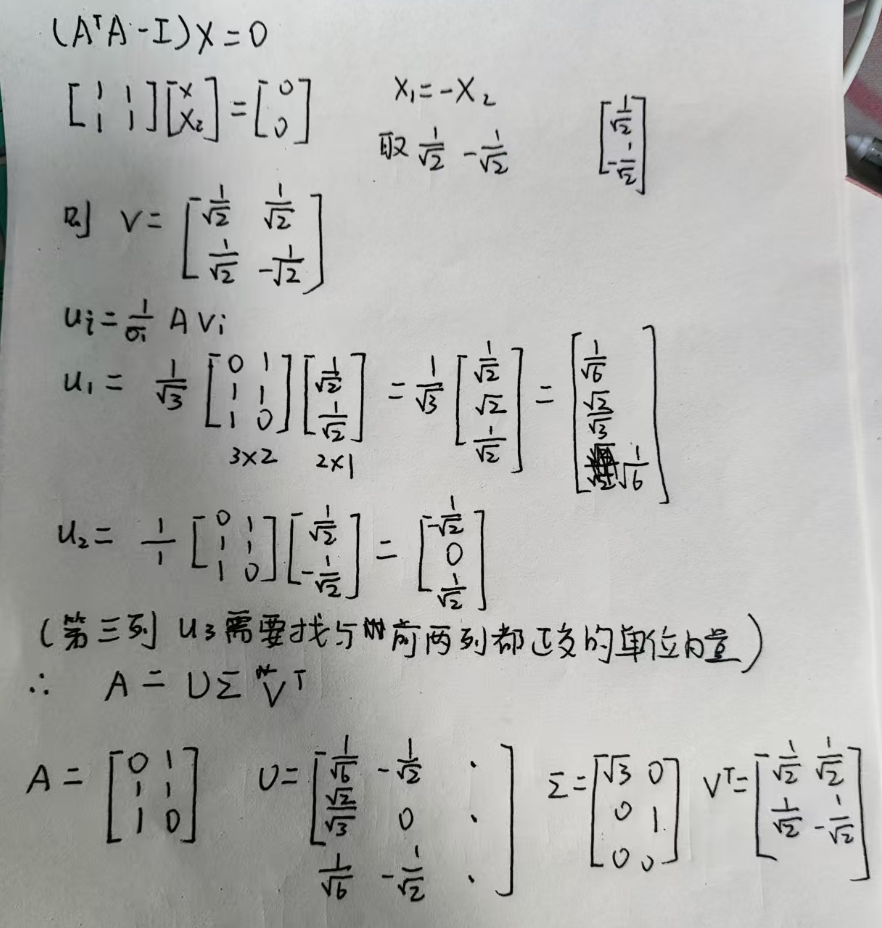 (AᵀA-I)X=0
[1 1; 1 1][x; x₂]=[0; 0]  x₁=-x₂  取 1/√2 -1/√2  [1/√2; -1/√2]
则 V=[1/√2 1/√2; 1/√2 -1/√2]
uᵢ=1/σᵢ A vᵢ
u₁= 1/√3 [0 1; 1 1; 1 0][1/√2; 1/√2] = 1/√3 [1/√2; √2; 1/√2] = [1/√6; √2/√3; 1/√6]
3×2 2×1
u₂= 1/1 [0 1; 1 1; 1 0][1/√2; -1/√2] = [-1/√2; 0; 1/√2]
(第三列 u₃需要找与前两列都正交的单位向量)
∴ A = UΣVᵀ
A = [0 1; 1 1; 1 0]  U=[1/√6 -1/√2 ·; √2/√3 0 ·; 1/√6 -1/√2 ·]  Σ=[√3 0; 0 1; 0 0]  Vᵀ=[1/√2 1/√2; 1/√2 -1/√2]